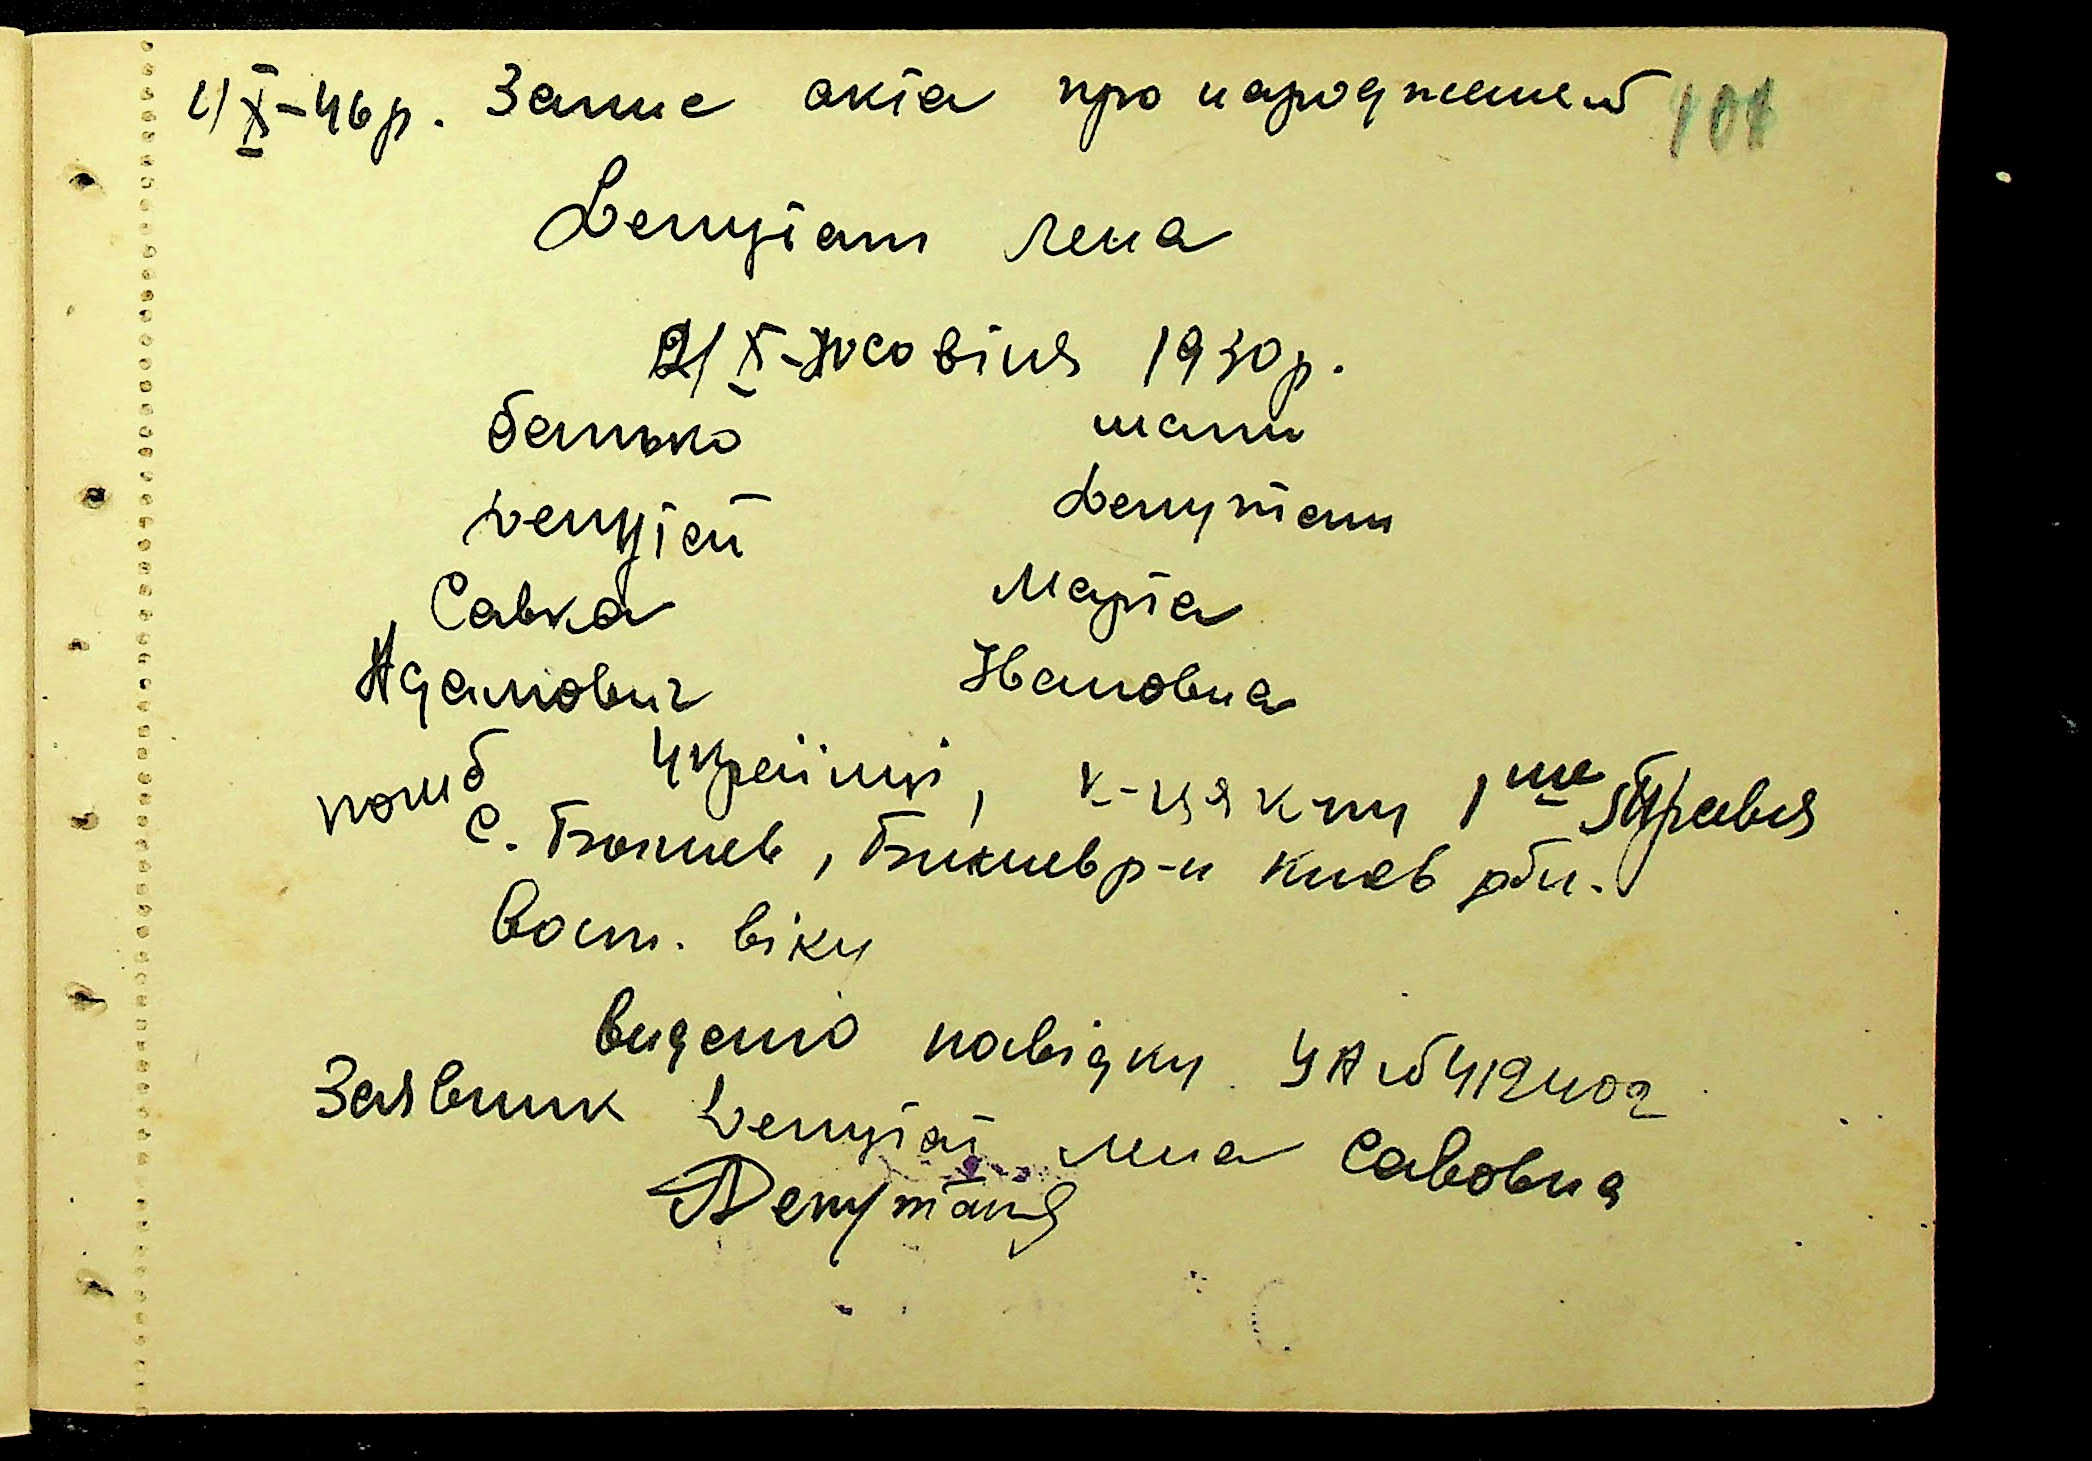 4/X-46р. Запис акта про народження № 101
Депутат Лена
2/X-жовтня 1930р.
батько мати
Депутат Депутат
Савка Марія
Адамович Івановна
Українці, к-ця к-пу 1ше Травня
с. Бишев, Бишев р-н Киев обл.
вост. віку
видано повідку УА № 412402
Заявник Депутат Лена Савовна